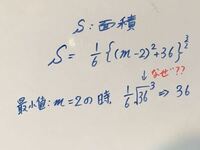 S:面積
S = 1/6 {(m-2)²+36}^{3/2}
↓なぜ??
最小値:m=2の時 1/6 √36³ ⇒ 36